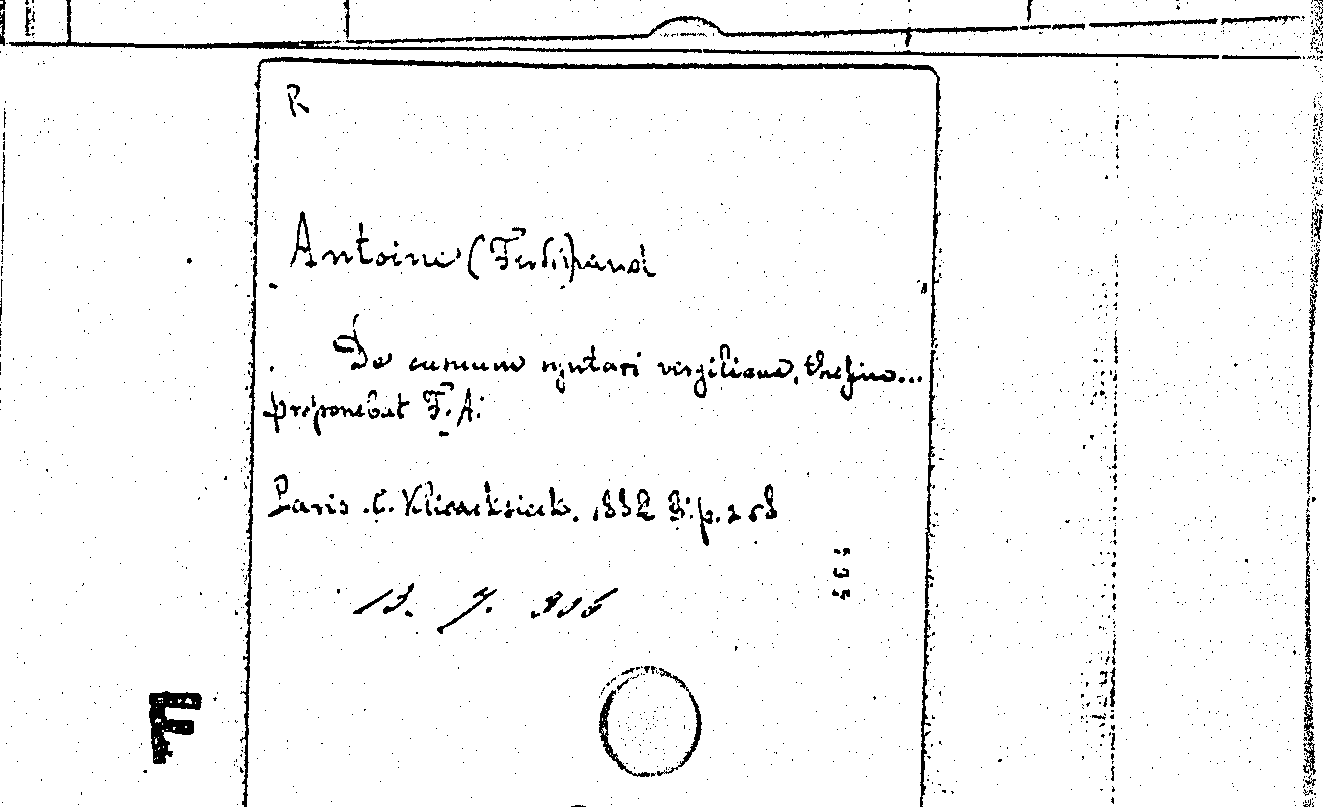 R
Antoine (Ferdinand
De casuum syntaxi vergiliana, thesim...
proponebat F. A.
Paris. C. Klincksieck. 1882 8. p. 268
F